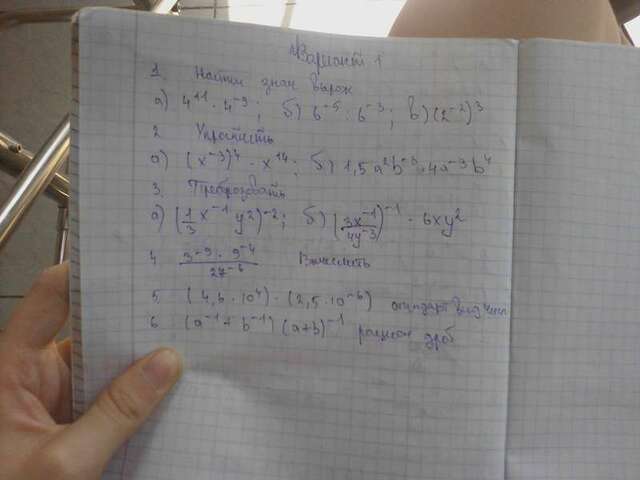 Вариант 1
1. Найти знач выраж
а) 4¹¹ · 4⁻⁹; б) 6⁻⁵ : 6⁻³; в) (2⁻²)³
2 Упростить
а) (x⁻³)⁴ · x¹⁴; б) 1,5a²b⁻⁵ · 4a⁻³b⁴
3. Преброзовать
а) (1/3 x⁻¹ y2)⁻²; б) (3x⁻¹/4y⁻³)⁻¹ · 6xy²
4. 3⁻⁹ · 9⁻⁴/27⁻⁶ Вычислить
5 (4,6 · 10⁴) · (2,5 · 10⁻⁶) стандарт вид числ
6 (a⁻¹ + b⁻¹) (a+b)⁻¹ рацион дроб